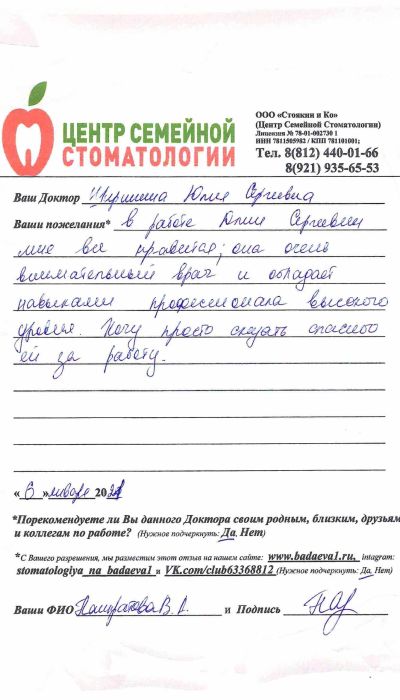 ЦЕНТР СЕМЕЙНОЙ
СТОМАТОЛОГИИ
ООО «Стоякин и Ко»
(Центр Семейной Стоматологии)
Лицензия № 78-01-002730 1
ИНН 7811505982 / КПП 781101001;
Тел. 8(812) 440-01-66
8(921) 935-65-53
Ваш Доктор Юлия Сергеевна
Ваши пожелания* в работе Юлии Сергеевны
мне все нравится; она очень
внимательный врач и обладает
навыками профессионала высокого
уровня. Хочу просто сказать спасибо
ей за работу.
« 6 » января 2021
*Порекомендуете ли Вы данного Доктора своим родным, близким, друзьям
и коллегам по работе? (Нужное подчеркнуть: Да, Нет)
*С Вашего разрешения, мы разместим этот отзыв на нашем сайте: www.badaeva1.ru, intagram:
stomatologiya_na_badaeva1 и VK.com/club63368812 (Нужное подчеркнуть: Да, Нет)
Ваши ФИО и Подпись